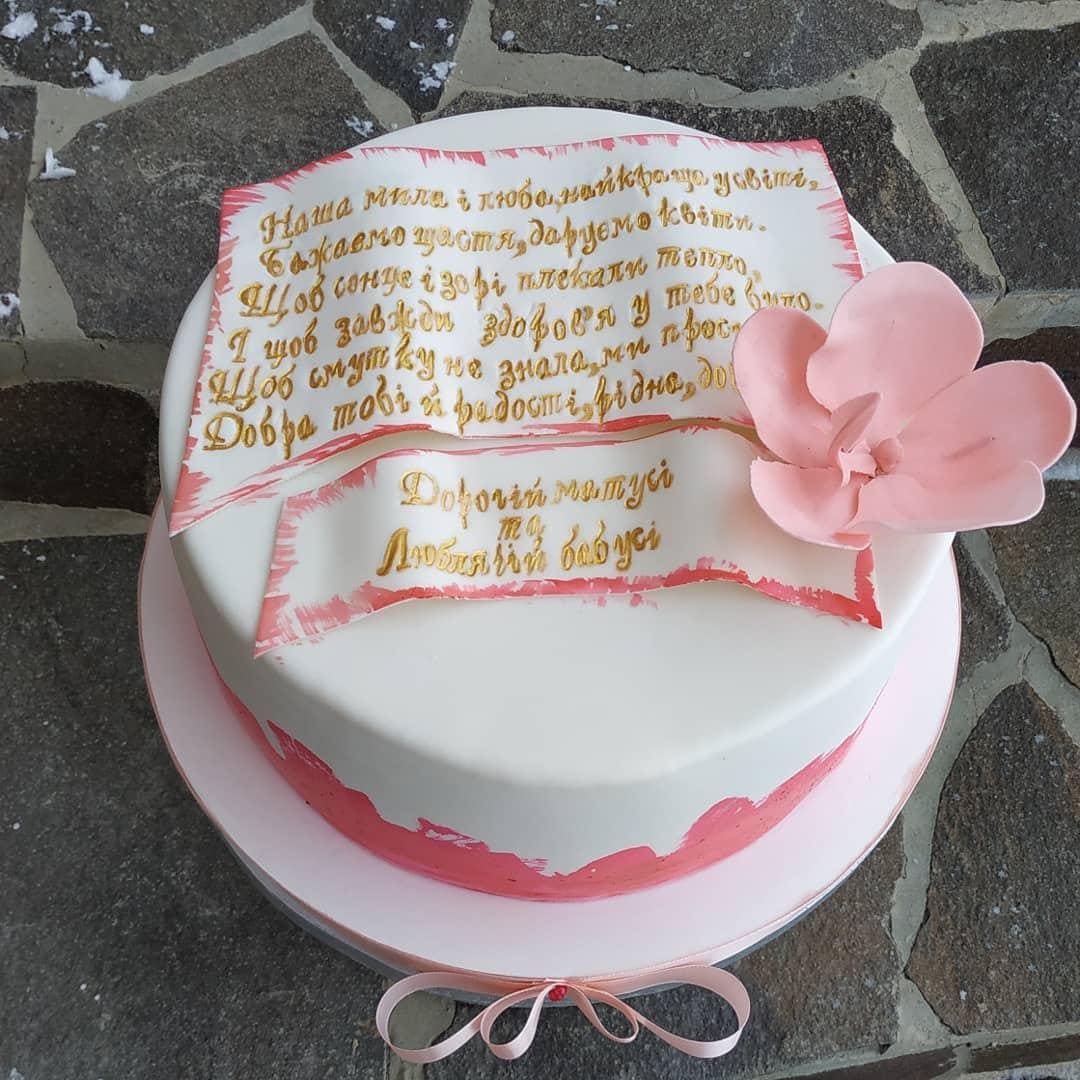 Наша мила і люба,найкраща у світі,
Бажаємо щастя,даруємо квіти.
Щоб сонце і зорі плекали тепло,
І щоб завжди здоров'я у тебе було.
Щоб смутку не знала,ми прос
Добра тобі й радості,рідна,до
Дорогій матусі
та
Люблячій бабусі